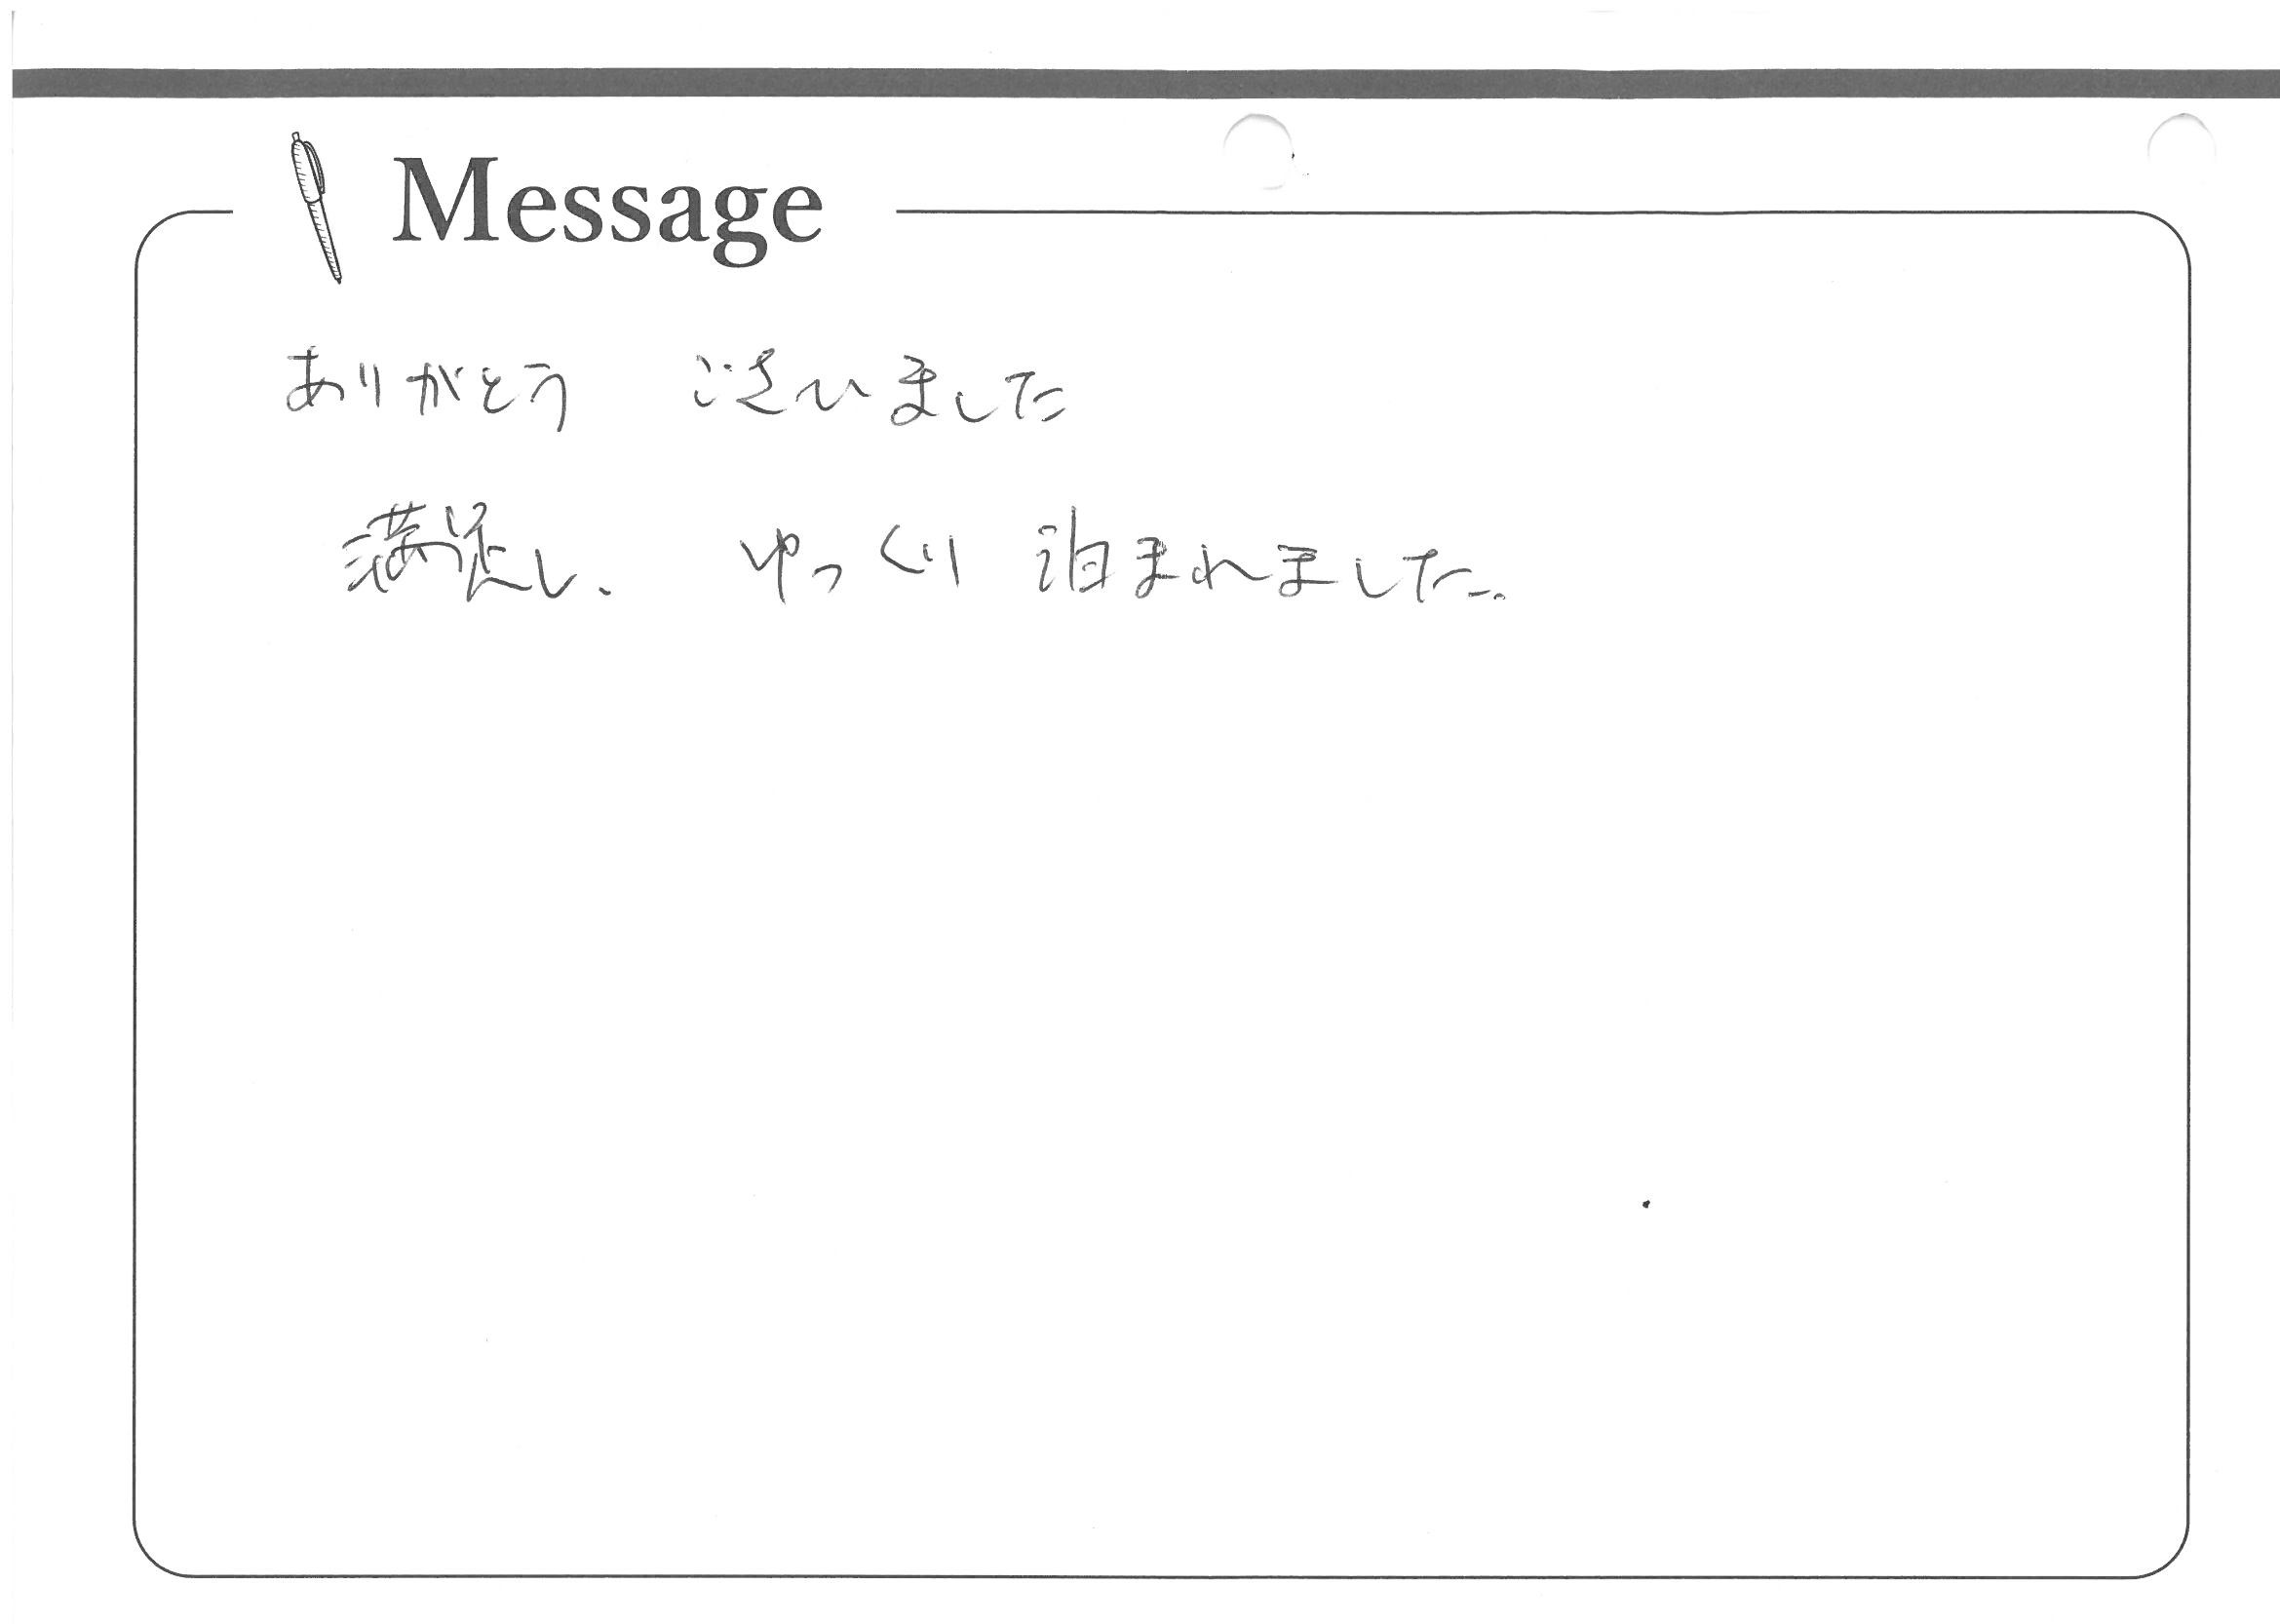 Message
ありがとう ございました
満足し、 ゆっくり 泊まれました。